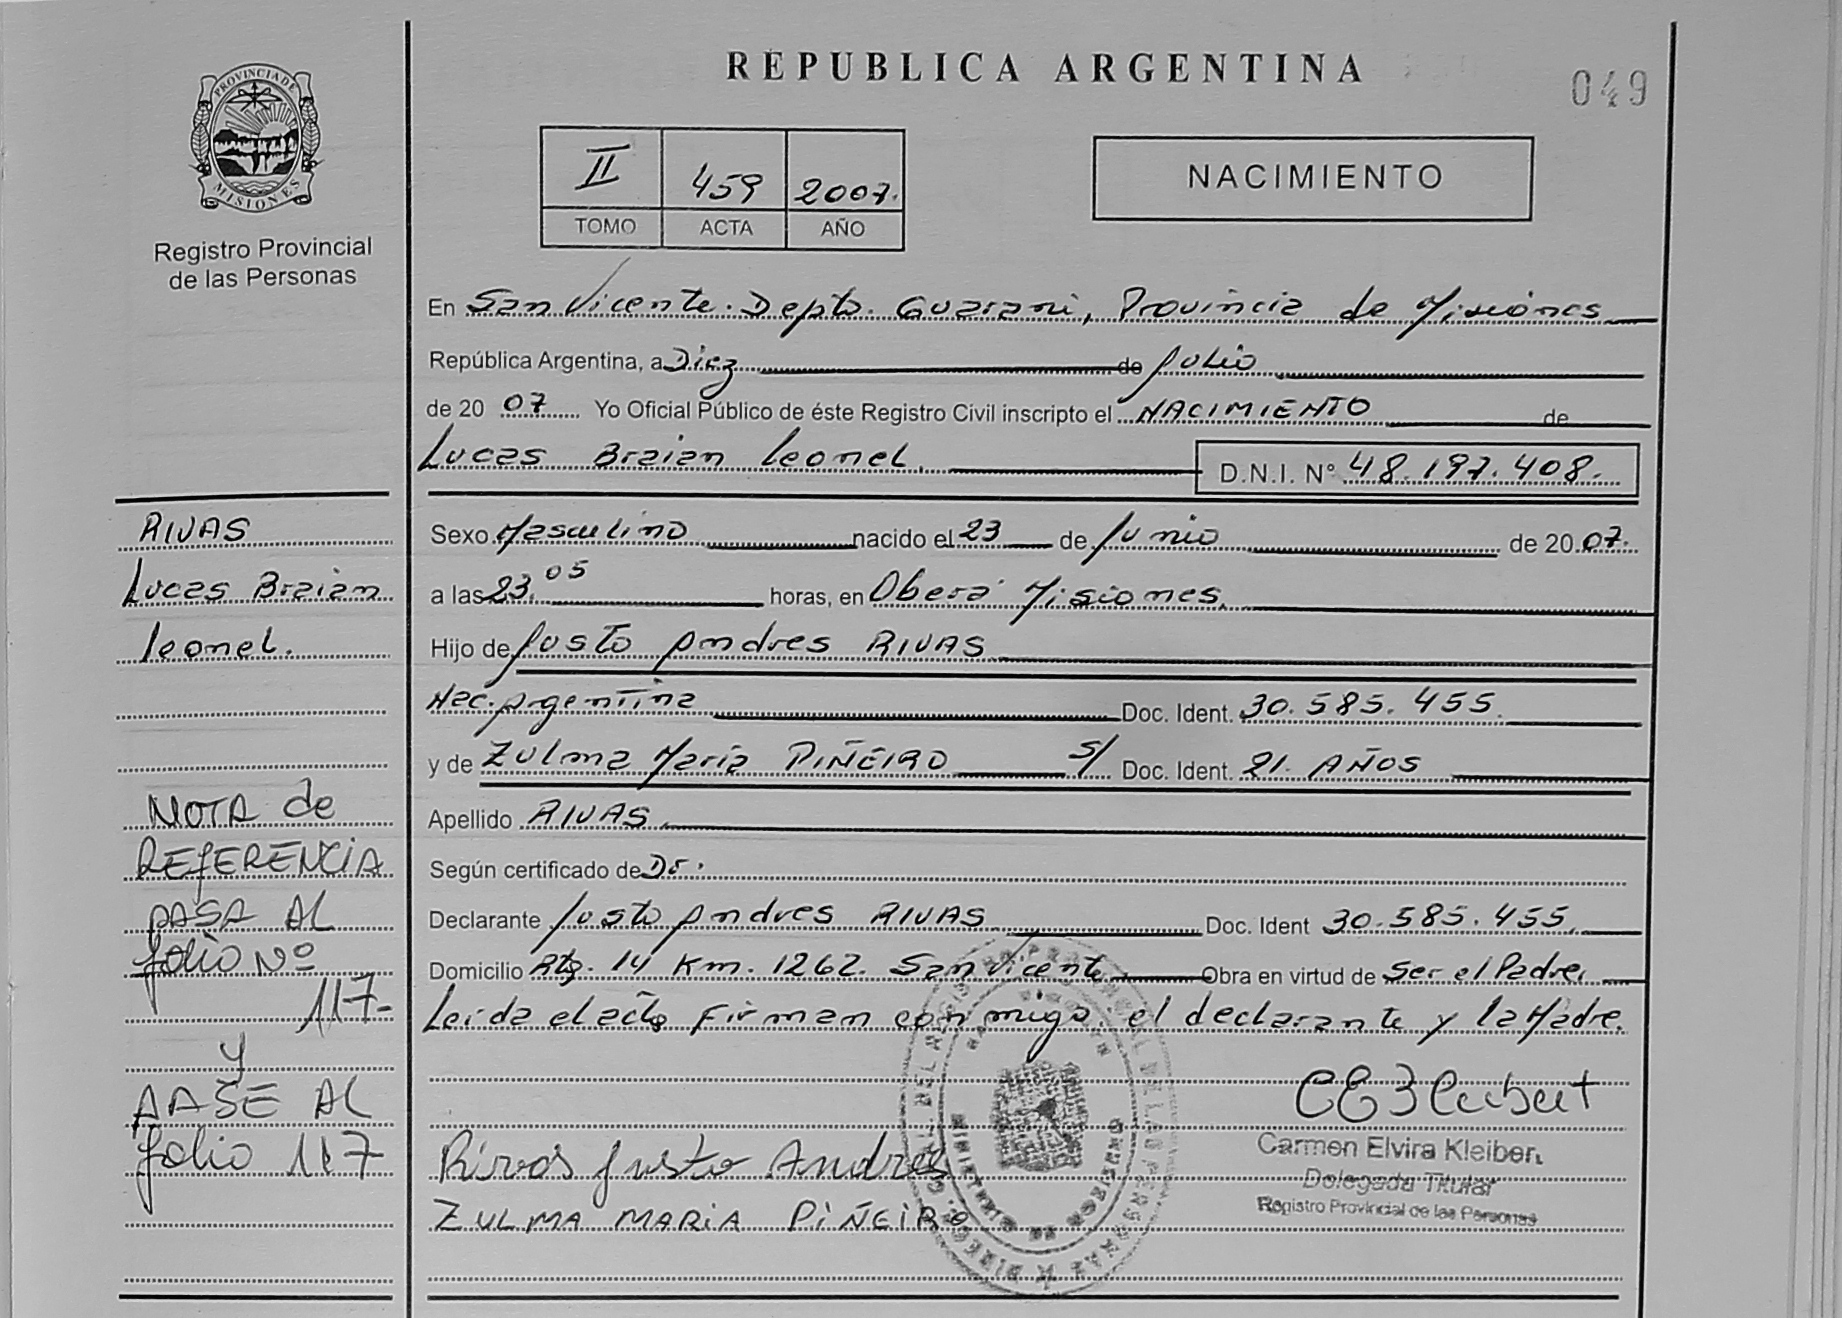 REPUBLICA ARGENTINA
049
PROVINCIA DE
MISIONES
Registro Provincial
de las Personas
II 459 2007.
TOMO ACTA AÑO
NACIMIENTO
En San Vicente. Depto. Guarani, Provincia de Misiones
República Argentina, a Diez de Julio
de 20 07 Yo Oficial Público de éste Registro Civil inscripto el NACIMIENTO de
Lucas Braian Leonel. D.N.I. Nº 48.197.408.
RIVAS
Lucas Braian
Leonel.
Sexo Masculino nacido el 23 de Junio de 20 07.
a las 23.05 horas, en Oberá Misiones.
Hijo de Justo Andres RIVAS
Nac. Argentina Doc. Ident. 30.585.455.
y de Zulma Maria PIÑEIRO S/ Doc. Ident. 21. AÑOS
Apellido RIVAS.
Según certificado de Dr.
Declarante Justo Andres RIVAS Doc. Ident 30.585.455.
Domicilio Rta. 14 Km. 1262. San Vicente Obra en virtud de Ser el Padre.
Leida el acta Firman conmigo el declarante y la Madre.
NOTA de
REFERENCIA
PASA AL
folio Nº
117-
y
PASE AL
folio 117
Rivas Justo Andres
ZULMA MARIA PIÑEIRO
Carmen Elvira Kleiber
Delegada Titular
Registro Provincial de las Personas